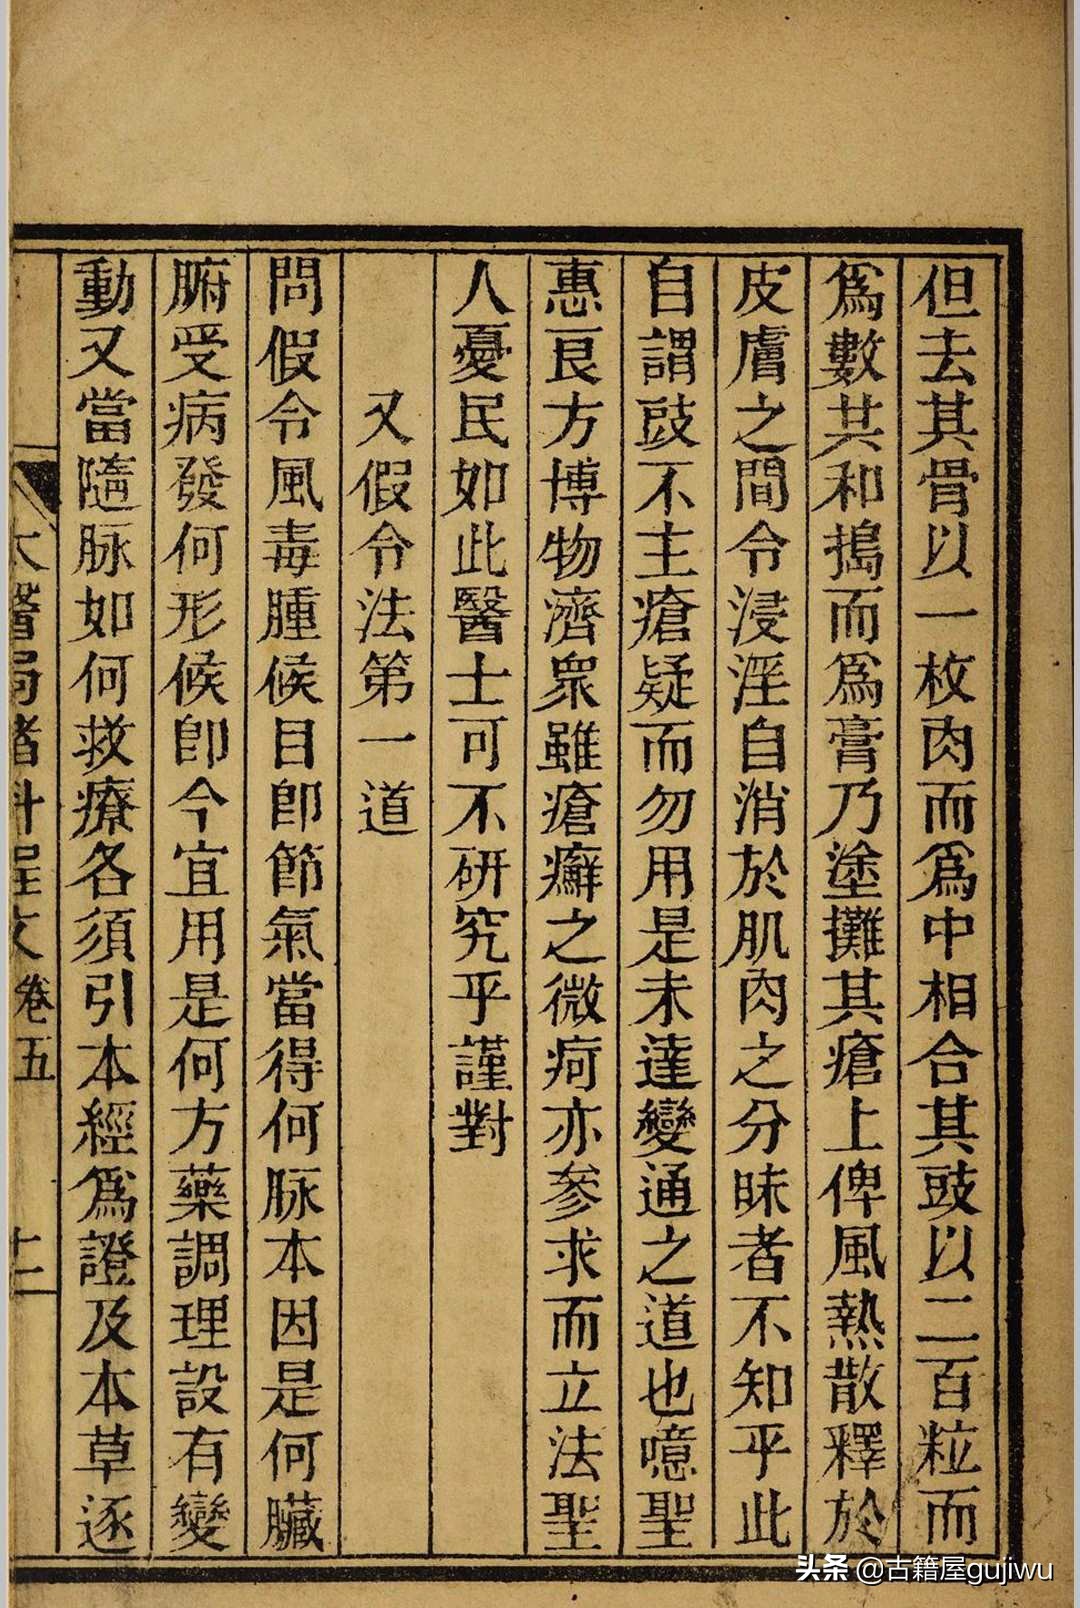 但去其骨以一枚肉而爲中相合其豉以二百粒而
爲數共和搗而爲膏乃塗攤其瘡上俾風熱散釋於
皮膚之間令浸淫自消於肌肉之分昧者不知乎此
自謂豉不主瘡疑而勿用是未達變通之道也噫聖
惠良方博物濟衆雖瘡癬之微疴亦參求而立法聖
人憂民如此醫士可不研究乎謹對
又假令法第一道
問假令風毒腫候目卽節氣當得何脉本因是何臟
腑受病發何形候卽今宜用是何方藥調理設有變
動又當隨脉如何救療各須引本經爲證及本草逐
太醫局諸科程文 卷五 十二
头条 @古籍屋gujiwu